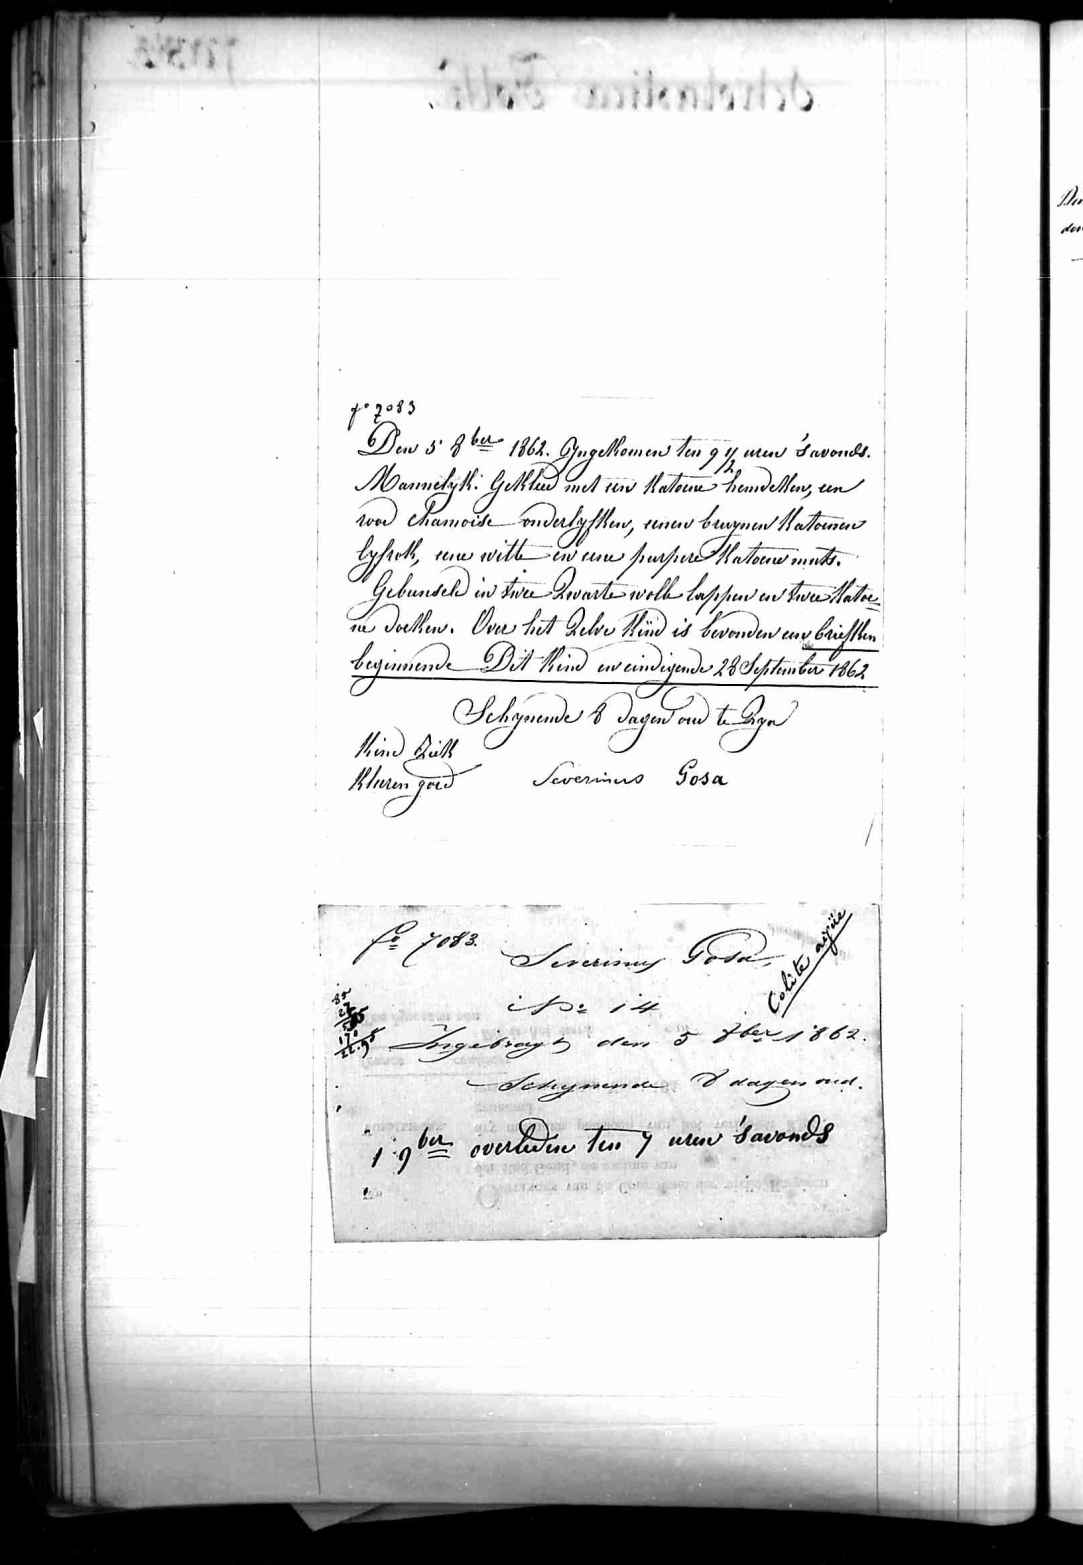 fo 7083
Den 5 8ber 1862. Ingekomen ten 9 1/2 uren 's avonds.
Mannelyk. Gekleed met een Katoene hemdeken, een
rood Chamoise onderlyfken, eenen bruynen Katoenen
lyfrok, eene witte en eene purpere Katoene muts.
Gebunseld in twee Zwarte wolle lappen en twee Katoe=
ne doeken. Over het Zelve Kind is bevonden een briefken
beginnende Dit Kind en eindigende 28 September 1862
Schynende 8 dagen oud te Zyn
Kind Ziek
Kleeren goed Severinus Gosa
fo 7083.
Severinus Gosa.
Colite aigüe
No 14
Ingebragt den 5 8ber 1862.
Schynende 8 dagen oud.
1 9ber overleden ten 7 uren 's avonds